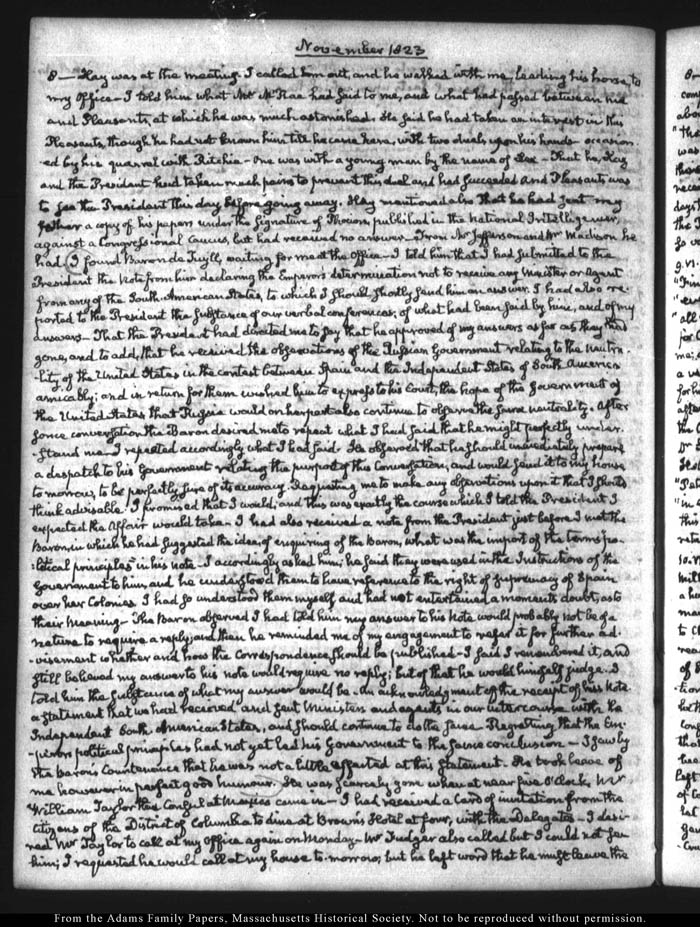 November 1823
8 — Hay was at the meeting. I called him out, and he walked with me, leading his horse, to
my Office — I told him what Mr McRae had said to me, and what had passed between me
and Pleasants, at which he was much astonished. He said he had taken an interest in this
Pleasants, though he had not known him till he came here, with two duels upon his hands occasion-
ed by his quarrel with Ritchie — One was with a young man by the name of — That he, Hay
and the President had taken much pains to prevent this duel and had succeeded and Pleasants was
to see the President this day before going away. Hay mentioned also that he had sent my
father a copy of his papers under the Signature of Phocion, published in the National Intelligencer,
against a Congressional Caucus, but had received no answer — From Mr Jefferson and Mr Madison he
had. I found Baron de Tuyll, waiting for me at the Office — I told him that I had submitted to the
President the Note from him declaring the Emperor's determination not to receive any Minister or Agent
from any of the South-American States, to which I should shortly send him an answer. I had also re-
ported to the President the substance of our verbal conferences; of what had been said by him, and of my
answers — That the President had directed me to say that he approved of my answers as far as they had
gone, and to add, that he received the observations of the Russian Government relating to the neutra-
lity of the United States in the contest between Spain and the Independent States of South America
amicably; and in return for them wished him to express to his Court, the hope of the Government of
the United States that Russia would on her part also continue to observe the same neutrality. After
some conversation the Baron desired me to repeat what I had said that he might perfectly under-
stand me. I repeated accordingly what I had said. He observed that he should immediately prepare
a despatch to his Government relating the purport of this Conversation, and would send it to my house
to morrow, to be perfectly sure of its accuracy. Requesting me to make any observations upon it that I should
think advisable. I promised that I would; and this was exactly the course which I told the President I
expected the Affair would take. I had also received a note from the President just before I met the
Baron, in which he had suggested the idea, of enquiring of the Baron, what was the import of the terms po-
litical principles in his note. I accordingly asked him; he said they were used in the Instructions of his
Government to him, and he understood them to have reference to the right of supremacy of Spain
over her Colonies. I had so understood them myself, and had not entertained a moment's doubt, as to
their meaning — The Baron observed I had told him my answer to his Note would probably not be of a
nature to require a reply, and then he reminded me of my engagement to refer it for further ad-
visement whether and how the Correspondence should be published — I said I remembered it, and
still believed my answer to his note would require no reply; but of that he would himself judge. I
told him the substance of what my answer would be — An acknowledgment of the receipt of his Note
a statement that we had received and sent Ministers and agents in our intercourse with the
Independent South American States, and should continue to do the same. Regretting that the Em-
peror's political principles had not yet led his Government to the same conclusion — I saw by
the Baron's Countenance that he was not a little affected at this statement. He took leave of
me however in perfect good humour. He was scarcely gone when at near five O'Clock, Mr
William Taylor the Consul at Mexico came in — I had received a Card of invitation from the
Citizens of the District of Columbia to dine at Brown's Hotel at four, with the Delegates — I desi-
red Mr Taylor to call at my Office again on Monday — Mr Fudger also called but I could not see
him; I requested he would call at my house to-morrow; but he left word that he must leave the
From the Adams Family Papers, Massachusetts Historical Society. Not to be reproduced without permission.